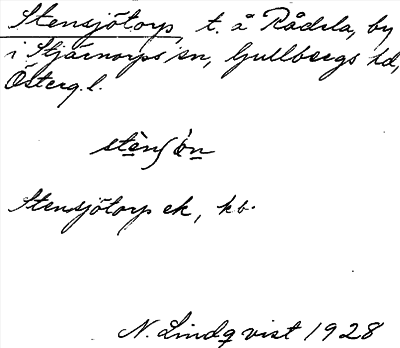 Stensjötorp, t. å Rådsla, by
i Stjärnorps sn, Gullbergs hd,
Österg. l.
Stensjötorp ek, kb.
N. Lindqvist 1928